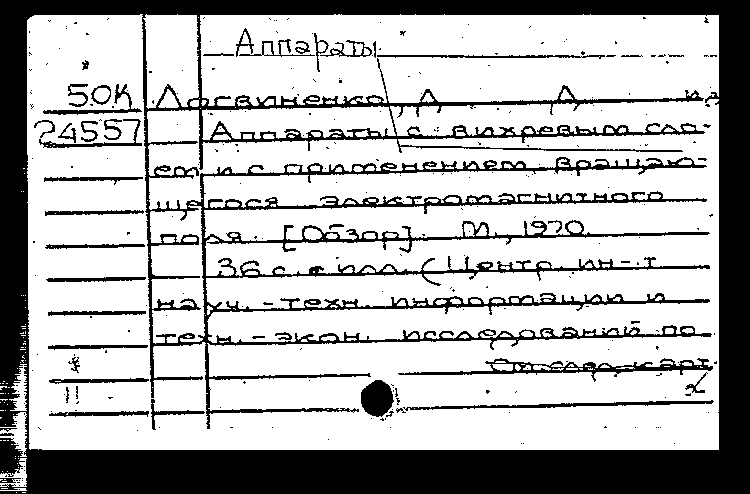 Аппараты
50К Логвиненко, Д Д и др
24557 Аппараты с вихревым сло-
ем и с применением вращаю-
щегося электромагнитного
поля. [Обзор]. М., 1970.
36 с. с илл. (Центр. ин-т
науч.-техн. информации и
техн.-экон. исследований по
См. след. карт.
11